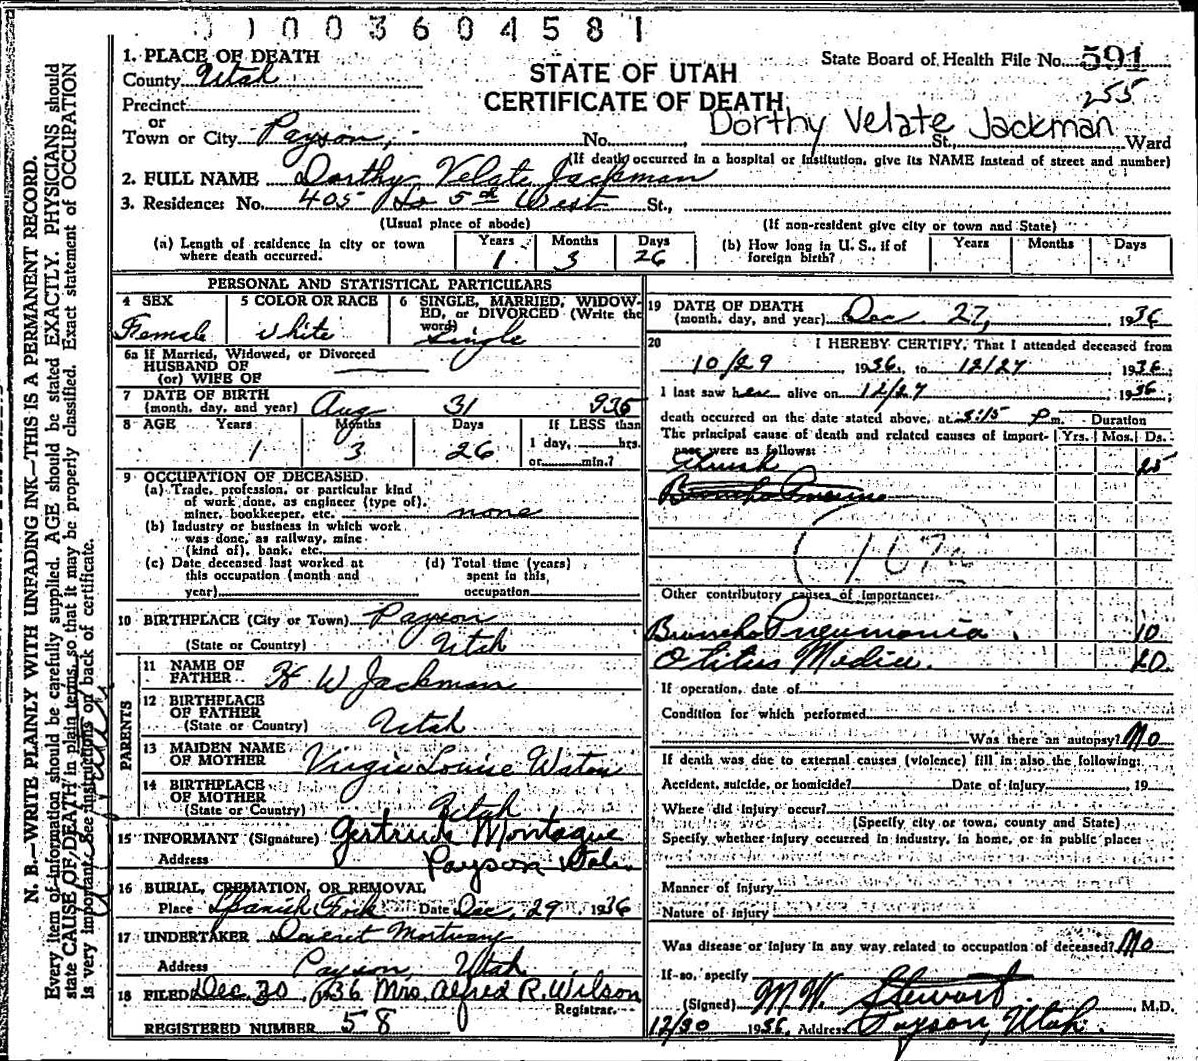 01003604581
1. PLACE OF DEATH
County Utah
STATE OF UTAH
CERTIFICATE OF DEATH
State Board of Health File No. 591
255
Precinct
or
Town or City Payson, No. St., Ward
Dorthy Velate Jackman
(If death occurred in a hospital or institution, give its NAME instead of street and number)
2. FULL NAME Dorthy Velate Jackman
3. Residences No. 405 So 5th West St.,
(Usual place of abode) (If non-resident give city or town and State)
(a) Length of residence in city or town where death occurred. Years 1 Months 3 Days 26
(b) How long in U. S., if of foreign birth? Years Months Days
PERSONAL AND STATISTICAL PARTICULARS
4 SEX Female
5 COLOR OR RACE White
6 SINGLE, MARRIED, WIDOWED, or DIVORCED (Write the word) Single
6a If Married, Widowed, or Divorced
HUSBAND OF
(or) WIFE OF
7 DATE OF BIRTH
(month, day, and year) Aug 31 935
8 AGE Years 1 Months 3 Days 26 If LESS than
1 day, hrs.
or min.?
9 OCCUPATION OF DECEASED
(a) Trade, profession, or particular kind
of work done, as engineer (type of),
miner, bookkeeper, etc. none
(b) Industry or business in which work
was done, as railway, mine
(kind of), bank, etc.
(c) Date deceased last worked at
this occupation (month and
year)
(d) Total time (years)
spent in this,
occupation
10 BIRTHPLACE (City or Town) Payson
(State or Country) Utah
PARENTS
11 NAME OF
FATHER H W Jackman
12 BIRTHPLACE
OF FATHER
(State or Country) Utah
13 MAIDEN NAME
OF MOTHER Virgie Louise
14 BIRTHPLACE
OF MOTHER
(State or Country) Utah
15 INFORMANT (Signature) Gertrude Montague
Address Payson
16 BURIAL, CREMATION, OR REMOVAL
Place Spanish Fork Date Dec. 29 1936
17 UNDERTAKER Mortuary
Address Payson, Utah
18 FILED Dec. 30 36 Mrs. Alfred R. Wilson
Registrar.
REGISTERED NUMBER 58
19 DATE OF DEATH
(month, day, and year) Dec. 27, 1936
20 I HEREBY CERTIFY, That I attended deceased from
10/29 1936, to 12/27 1936,
I last saw her alive on 12/27 1936,
death occurred on the date stated above, at 5:15 P m. Duration
The principal cause of death and related causes of importance were as follows: Yrs. Mos. Ds.
Thrush 25
Broncho Pneumo
107a
Other contributory causes of importance:
Broncho Pneumonia. 10
Otitus Media. 20
If operation, date of
Condition for which performed
Was there an autopsy? No
If death was due to external causes (violence) fill in also the following:
Accident, suicide, or homicide? Date of injury 19
Where did injury occur?
(Specify city or town, county and State)
Specify whether injury occurred in industry, in home, or in public place:
Manner of Injury
Nature of Injury
Was disease or injury in any way related to occupation of deceased? No
If so, specify
(Signed) M. W. Stewart, M.D.
12/30 1936, Address Payson, Utah.
N. B.—WRITE PLAINLY WITH UNFADING INK—THIS IS A PERMANENT RECORD.
Every item of information should be carefully supplied. AGE should be stated EXACTLY. PHYSICIANS should
state CAUSE OF DEATH in plain terms, so that it may be properly classified. Exact statement of OCCUPATION
is very important. See instructions on back of certificate.